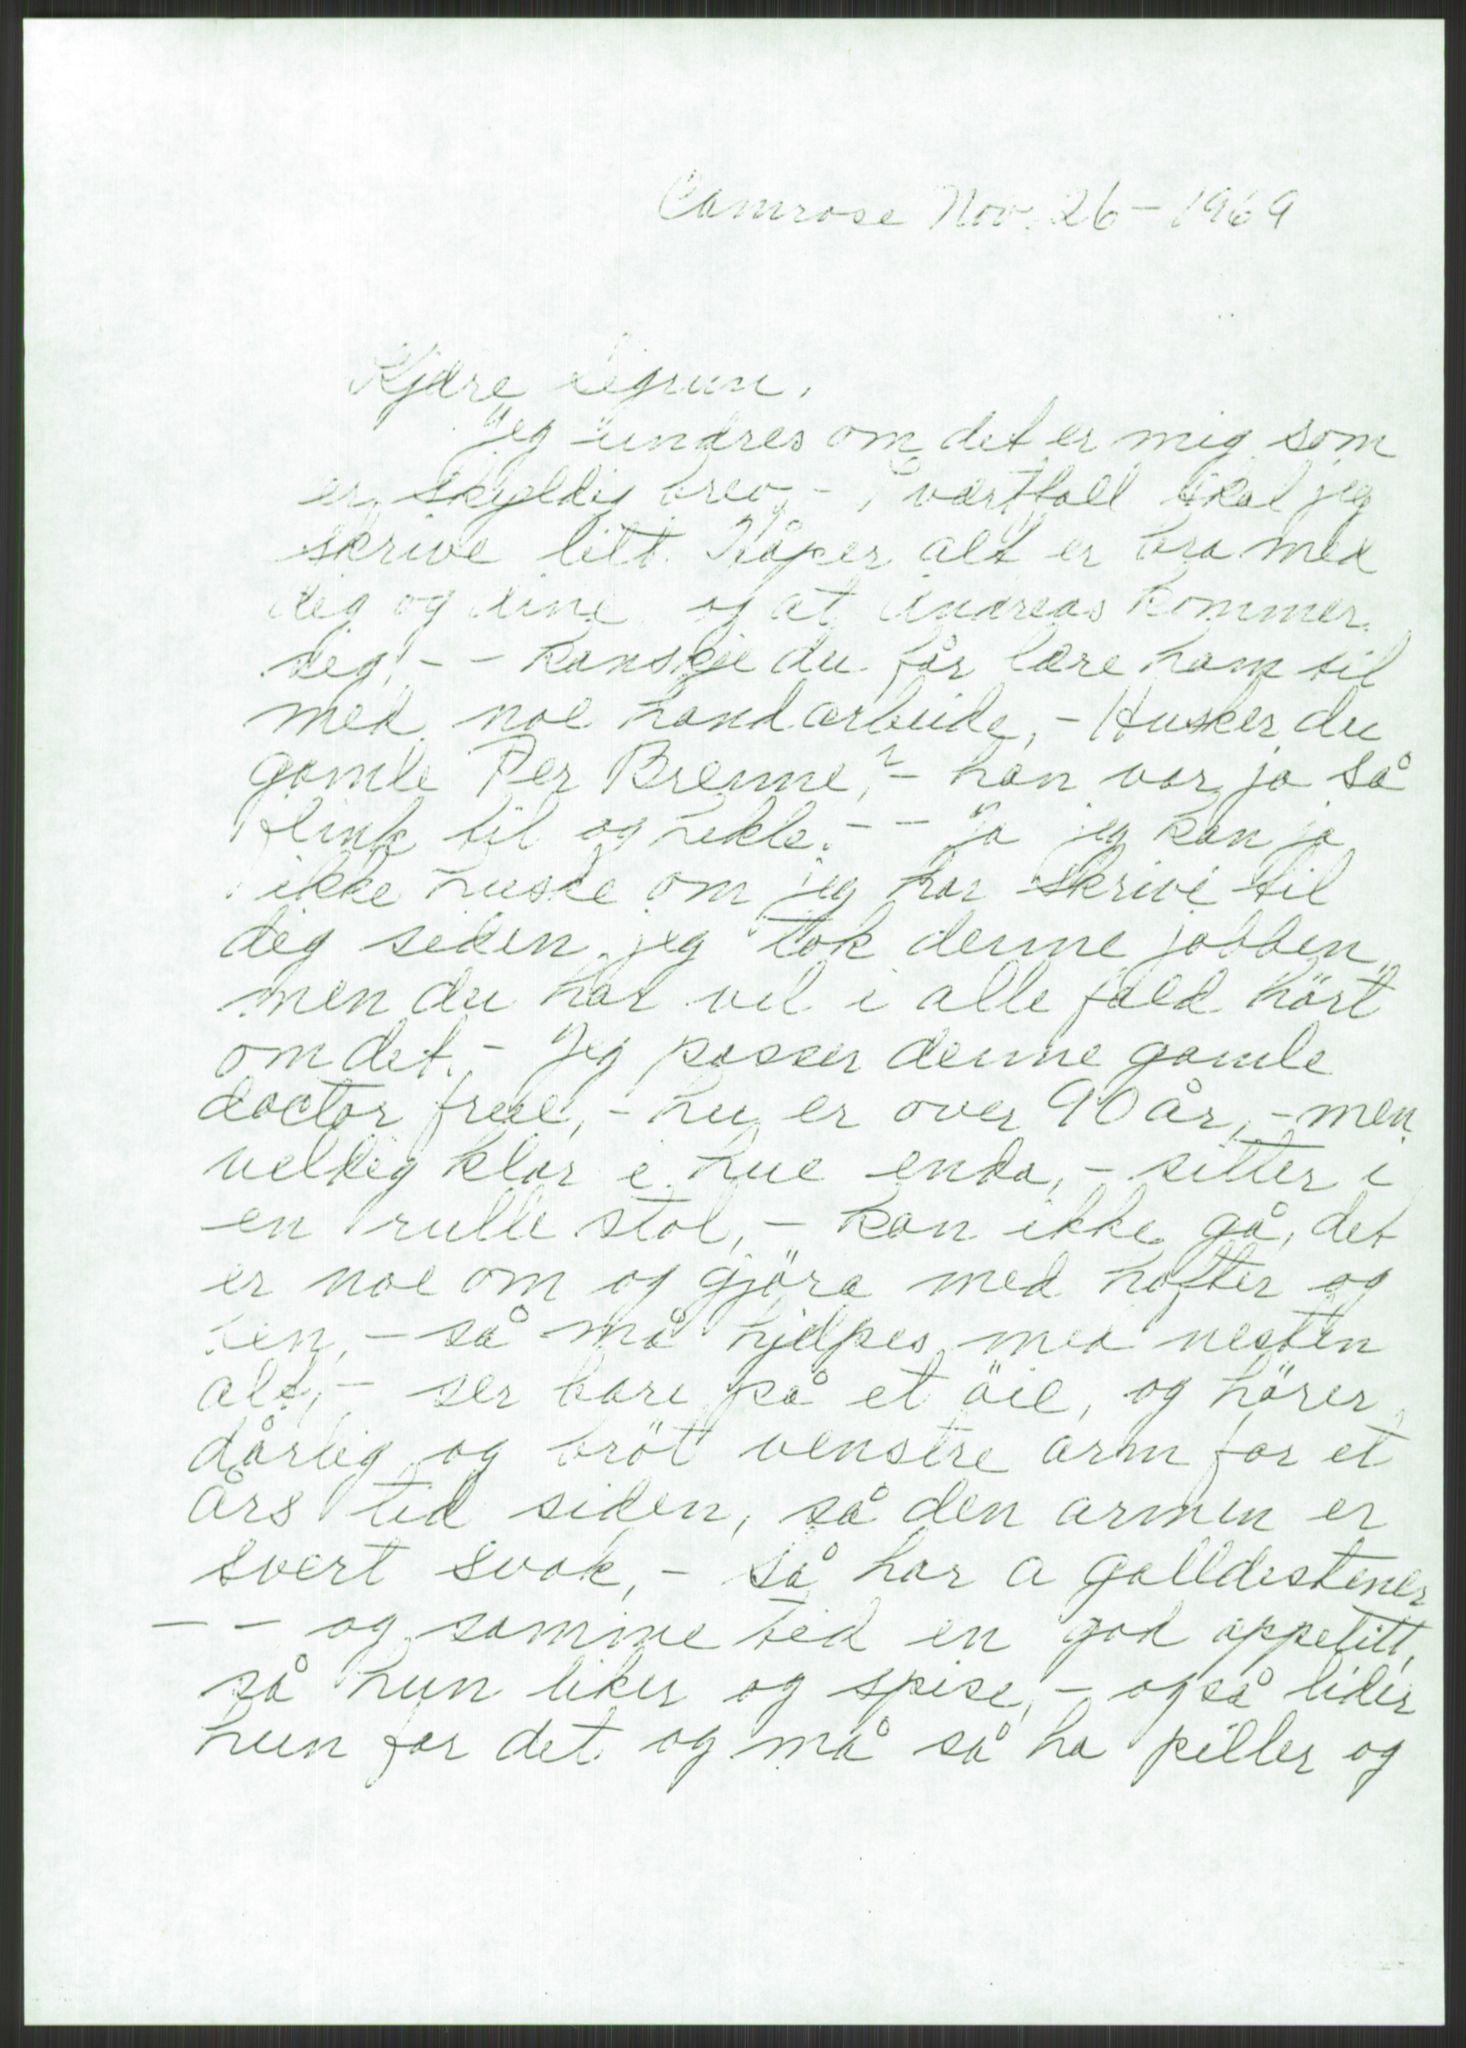 Camrose Nov. 26 – 1969
Kjære Sigrun.
Jeg undres om det er mig som
er skyldig brev, – i værtfall skal jeg
skrive litt. Håper alt er bra med
dig og dine og at Andreas kommer
seg, – – kanskje du får lære ham til
med noe handarbeide, – Husker du
gamle Per Brenne,? – han var jo så
flink til og hekle. – – Ja jeg kan jo
ikke huske om jeg har skrive til
dig siden jeg tok denne jobben,
men du har vel i alle fald hört
om det. – Jeg passer denne gamle
doctor frue, – hu er over 90 år, – men
veldig klar i hue enda, – sitter i
en rulle stol, – kan ikke gå, det
er noe om og gjöra med hofter og
ben, – så må hjelpes med nesten
alt, – ser bare på et öie, og hörer
dårlig og bröt venstre arm for et
års tid siden, så den armen er
svert svak, – så har a galldestener
– – og samme tid en god appetitt,
så hun liker og spise, – også lider
hun for det og må så ha piller og